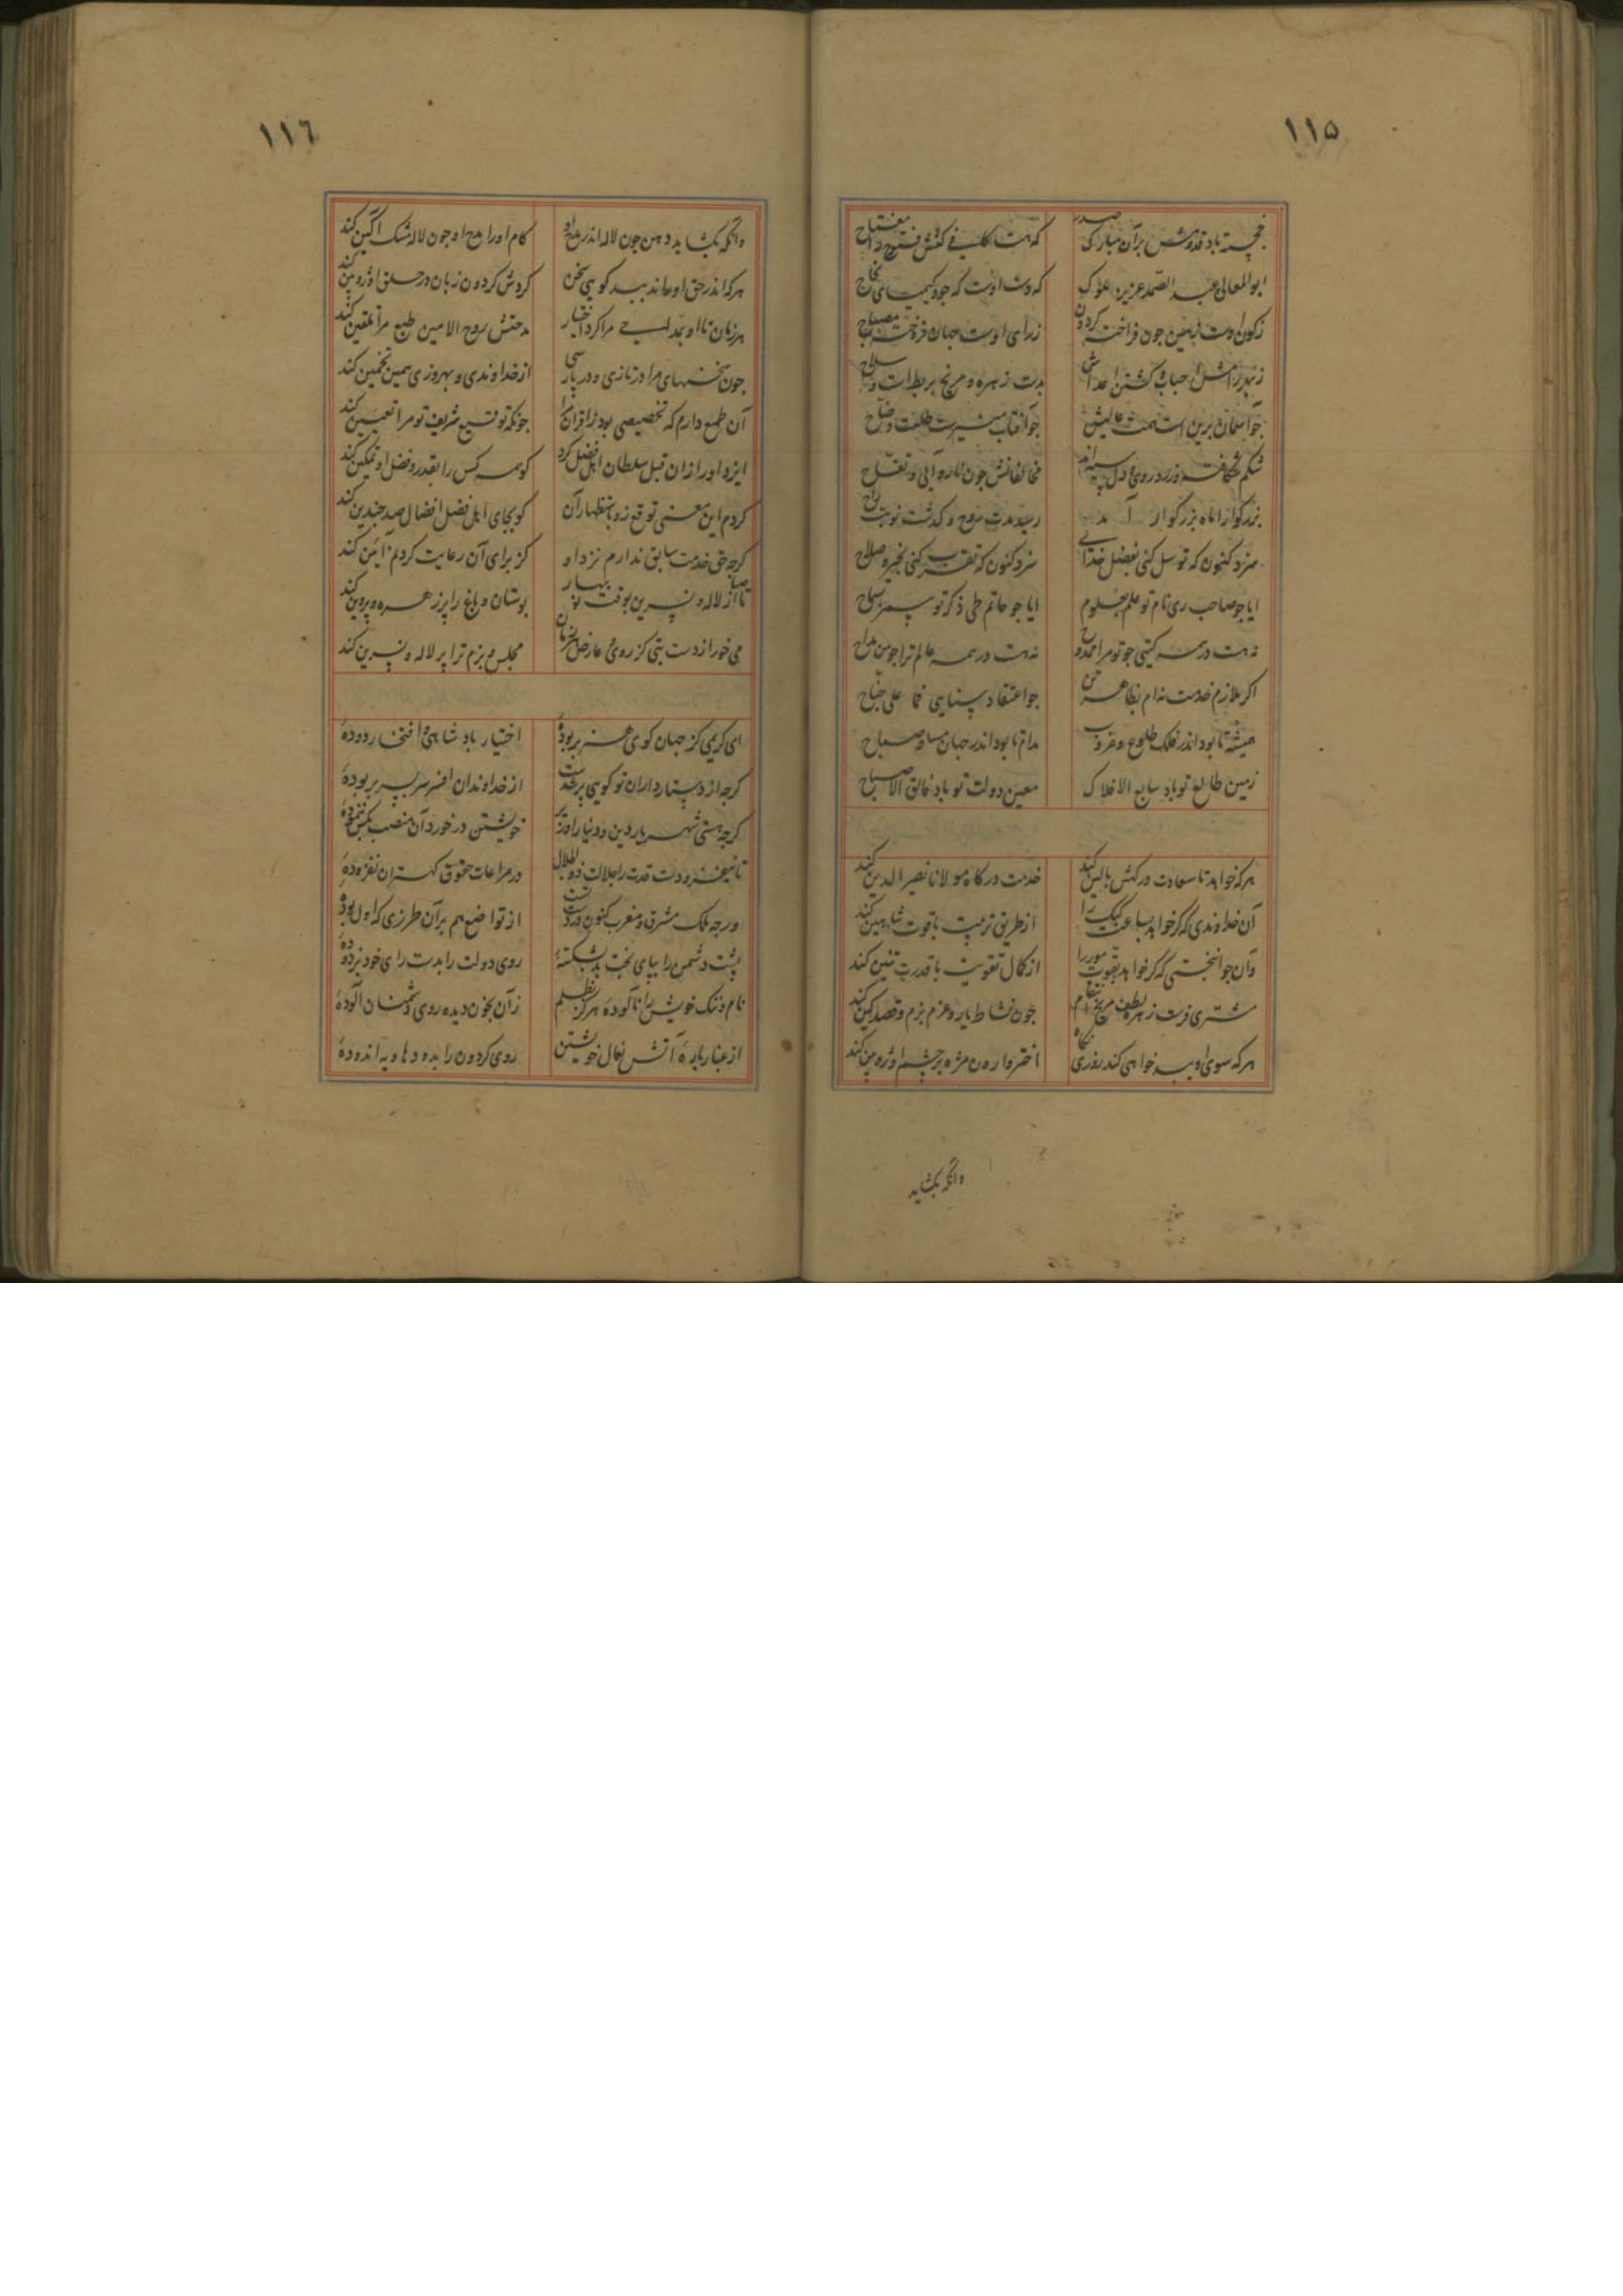 ۱۱۵
خجسته باد قدومش بران مبارک صدر
که هست کلک و کفش فتوح را مفتاح
ابو المعالی عبد الصمد عزیز ملوک
که دست اوست که جود کیمیای نجاح
زرای اوست جهان فروخته مصباح
بدست زهره و مریخ بربط است و سلاح
جو آسمان برین است همت عالیش
جو آفتاب منیرست طلعت وضاح
مخالفانش جون نار و آبی و تفاح
بزرگوارا ماه بزرگوار آمد
رسید مدت روح و کذشت نوبت راح
سزد کنون که توسل کنی بفضل خدای
سزد کنون که تقرب کنی بخیر و صلاح
ایا جو صاحب ری نام تو علم بعلوم
ایا جو حاتم طی ذکر تو سمر بسماح
نه هست در همه کیتی جو تو مرا ممدوح
نه هست در همه عالم ترا جو من مداح
اکر ملازم خدمت نه ام بظاهر تن
همیشه تا بود اندر فلک طلوع و غروب
مدام تا بود اندر جهان مسا و صباح
زمین طالع تو باد سایع الافلاک
معین دولت تو باد خالق الاصباح
هرکه خواهد تا سعادت در کهش بالین کند
خدمت درکاه مولانا نصیر الدین کند
آن خداوندی که کر خواهد بساعت کبک را
از طریق تربیت با قوت شاهین کند
وآن جوانبختی که کر خواهد بقوت مور را
از کمال تقویت با قدرت تنین کند
مشتری فرست زهره لطف مریخ انتقام
جون نشاط یار و عزم بزم و قصد کین کند
هرکه سوی او ببد خواهی کند روزی نکاه
اختر وارون مژه بر چشم او زوبین کند
وانکه بکشاید
۱۱٦
وانکه بکشاید دهن جون لاله اندر مدح او
کام او را مدح او جون لاله مشک آکین کند
هرکه اندر حق او حاند ببد کویی سخن
کردش کردون زبان در حلق او زوبین کند
هر زمان تا او بمداحی مرا کرد اختیار
مدحتش روح الامین طبع مرا تلقین کند
جون سخنهای مرا در تازی و در پارسی
از خداوندی و بهروزی همین تخمین کند
آن طمع دارم که تخصیصی بود ز اقران مرا
جونکه توقیع شریف تو مرا تعیین کند
ایزد او را زان قبل سلطان اهل فضل کرد
کو همه کس را بقدر و فضل او تمکین کند
کردم این معنی توقع زو باستظهار آن
کو بجای اهل فضل افضال صد جندین کند
کرجه حق خدمت سابق ندارم نزد او
کز برای آن رعایت کردنم آیین کند
تا صبا از لاله و نسرین بوقت نوبهار
بوستان و باغ را پر زهره و پروین کند
می خور از دست بتی کز روی و عارض هر زمان
مجلس و بزم ترا پر لاله و نسرین کند
ای کریمی کز جهان کوی هنر بربودهٔ
اختیار باد شاهی و افتخار دودهٔ
کرجه از دستارداران تو کویی بر نخست
از خداوندان افسر سر بسر بر بودهٔ
کرجه هستی شهریار دین و دنیا را وزیر
خویشتن در خورد آن منصب بکس ننمودهٔ
در مراعات حقوق کهتران نفزودهٔ
ورجه ملک مشرق و مغرب کنون در دست تست
از تواضع هم بر آن طرزی که اول بودهٔ
پشت دشمن را بپای بخت بد بشکستهٔ
روی دولت را بدست رای خود بزدودهٔ
نام و ننک خویش را ناکوده هرکز بظلم
زآن بخون دیده روی دشمنان آلودهٔ
از غبار باره آتش نعال خویشتن
روی کردون را بدود هاویه اندودهٔ